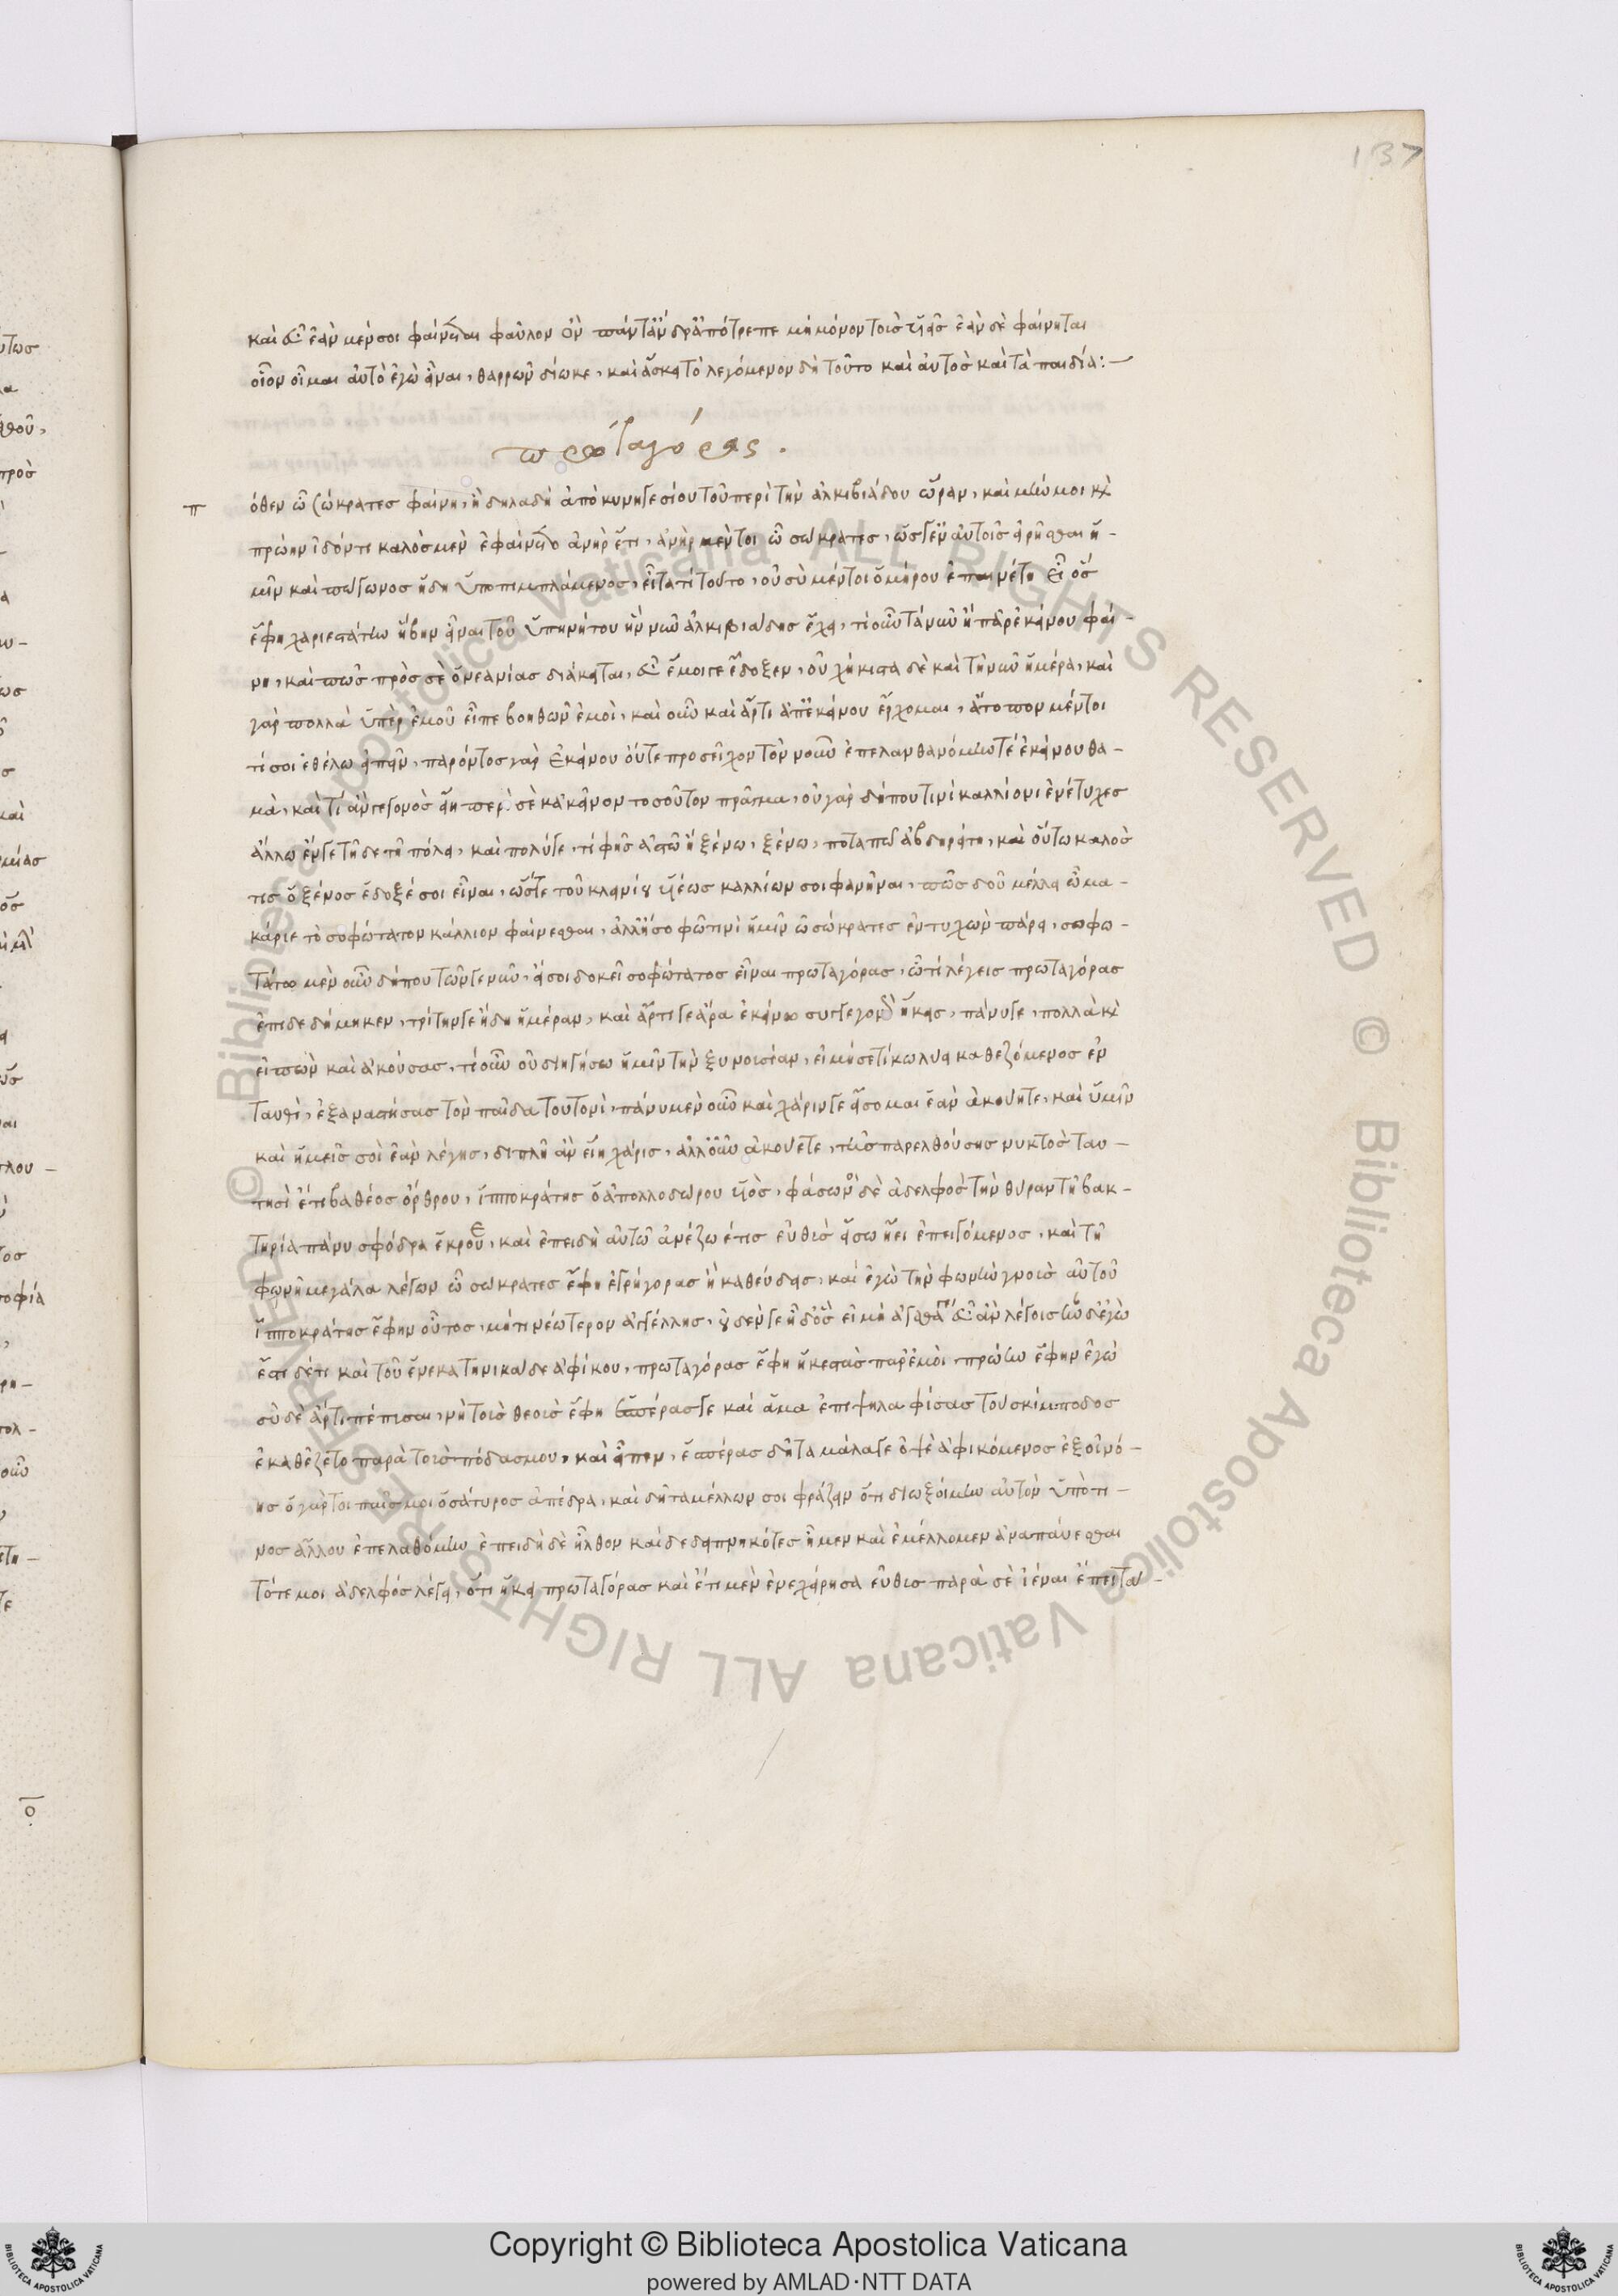 137
καὶ εὖ ἐὰν μέν σοι φαίνηται φαῦλον ὂν πάντ' ἄνδρ' ἀπότρεπε μὴ μόνον τοὺς υἱεῖς ἐὰν δὲ φαίνηται
οἷον οἶμαι αὐτὸ ἐγὼ εἶναι, θαρρῶν δίωκε, καὶ ἄσκει τὸ λεγόμενον δὴ τοῦτο καὶ αὐτὸς καὶ τὰ παιδία:—
πρωταγόρας.
Π όθεν ὦ σώκρατες φαίνῃ, ἢ δηλαδὴ ἀπὸ κυνηγεσίου τοῦ περὶ τὴν ἀλκιβιάδου ὥραν, καὶ μήν μοι καὶ
πρώην ἰδόντι καλὸς μὲν ἐφαίνετο ἀνὴρ ἔτι, ἀνὴρ μέντοι ὦ σώκρατες, ὥς γ' ἐν αὐτοῖς εἰρῆσθαι ἡ-
μῖν καὶ πώγωνος ἤδη ὑποπιμπλάμενος, εἶτα τί τοῦτο, οὐ σὺ μέντοι ὁμήρου ἐπαινέτης εἶ ὃς
ἔφη χαριεστάτην ἥβην εἶναι τοῦ ὑπηνήτου ἣν νῦν ἀλκιβιάδης ἔχει, τί οὖν τὰ νῦν ἢ παρ' ἐκείνου φαί-
νῃ, καὶ πῶς πρός σε ὁ νεανίας διάκειται, εὖ ἔμοιγε ἔδοξεν, οὐχ ἥκιστα δὲ καὶ τῇ νῦν ἡμέρᾳ, καὶ
γὰρ πολλὰ ὑπὲρ ἐμοῦ εἶπε βοηθῶν ἐμοὶ, καὶ οὖν καὶ ἄρτι ἀπ' ἐκείνου ἔρχομαι, ἄτοπον μέντοι
τί σοι ἐθέλω εἰπεῖν, παρόντος γὰρ ἐκείνου οὔτε προσεῖχον τὸν νοῦν ἐπελανθανόμην τέ ἐκείνου θα-
μὰ, καὶ τί ἂν γεγονὸς εἴη περὶ σὲ κἀκεῖνον τοσοῦτον πρᾶγμα, οὐ γὰρ δήπου τινὶ καλλίονι ἐνέτυχες
ἄλλῳ ἔν γε τῇδε τῇ πόλει, καὶ πολύ γε, τί φῂς ἀστῷ ἢ ξένῳ, ξένῳ, ποταπῷ ἀβδηρίτῃ, καὶ οὕτω καλός
τις ὁ ξένος ἔδοξέ σοι εἶναι, ὥστε τοῦ κλεινίου υἱέως καλλίων σοι φανῆναι, πῶς δ' οὐ μέλλει ὦ μα-
κάριε τὸ σοφώτατον κάλλιον φαίνεσθαι, ἀλλ' ἦ σοφῷ τινὶ ἡμῖν ὦ σώκρατες ἐντυχὼν πάρει, σοφω-
τάτῳ μὲν οὖν δήπου τῶν γε νῦν, εἴ σοι δοκεῖ σοφώτατος εἶναι πρωταγόρας, ὦ τί λέγεις πρωταγόρας
ἐπιδεδήμηκεν, τρίτην γε ἤδη ἡμέραν, καὶ ἄρτι γε ἄρα ἐκείνῳ συγγεγονὼς ἥκεις, πάνυ γε, πολλὰ καὶ
εἰπὼν καὶ ἀκούσας, τί οὖν οὐ διηγήσω ἡμῖν τὴν ξυνουσίαν, εἰ μή σέ τι κωλύει καθεζόμενος ἐν
ταυθὶ, ἐξαναστήσας τὸν παῖδα τουτονὶ, πάνυ μὲν οὖν καὶ χάριν γε εἴσομαι ἐὰν ἀκούητε, καὶ ὑμῖν
καὶ ἡμεῖς σοὶ ἐὰν λέγῃς, διπλῆ ἂν εἴη χάρις, ἀλλ' οὖν ἀκούετε, τῆς παρελθούσης νυκτὸς ταυ-
τησὶ ἔτι βαθέος ὄρθρου, ἱπποκράτης ὁ ἀπολλοδώρου υἱὸς, φάσωνος δὲ ἀδελφὸς τὴν θύραν τῇ βακ-
τηρίᾳ πάνυ σφόδρα ἔκρουε, καὶ ἐπειδὴ αὐτῷ ἀνέῳξέ τις εὐθὺς εἴσω ᾔει ἐπειγόμενος, καὶ τῇ
φωνῇ μεγάλα λέγων ὦ σώκρατες ἔφη ἐγρήγορας ἢ καθεύδεις, καὶ ἐγὼ τὴν φωνὴν γνοὺς αὐτοῦ
ἱπποκράτης ἔφην οὗτος, μή τι νεώτερον ἀγγέλλεις, οὐδέν γε ἦ δ' ὃς εἰ μὴ ἀγαθά γε εὖ ἂν λέγοις ἦν δ' ἐγὼ
ἔστι δὲ τί καὶ τοῦ ἕνεκα τηνικάδε ἀφίκου, πρωταγόρας ἔφη ἥκει στὰς παρ' ἐμοὶ, πρώην ἔφην ἐγὼ
σὺ δὲ ἄρτι πέπυσαι, νὴ τοὺς θεοὺς ἔφη ἑσπέρας γε καὶ ἅμα ἐπιψηλαφήσας τοῦ σκίμποδος
ἐκαθέζετο παρὰ τοὺς πόδας μου, καὶ εἶπεν, ἑσπέρας δῆτα μάλα γε ὀψὲ ἀφικόμενος ἐξ οἰνό-
ης ὁ γάρ τοι παῖς μοι ὁ σάτυρος ἀπέδρα, καὶ δῆτα μέλλων σοι φράζειν ὅτι διωξοίμην αὐτὸν ὑπό τι-
νος ἄλλου ἐπελαθόμην ἐπειδὴ δὲ ἦλθον καὶ δεδειπνηκότες ἦμεν καὶ ἐμέλλομεν ἀναπαύεσθαι
τότε μοι ἀδελφός λέγει, ὅτι ἥκει πρωταγόρας καὶ ἔτι μὲν ἐνεχείρησα εὐθὺς παρὰ σὲ ἰέναι ἔπειτα
© Biblioteca Apostolica Vaticana ALL RIGHTS RESERVED
Copyright © Biblioteca Apostolica Vaticana
powered by AMLAD·NTT DATA